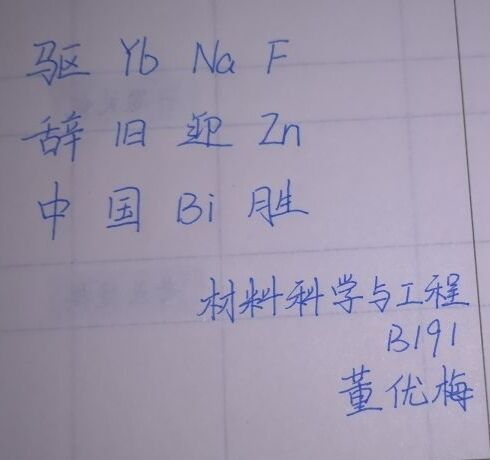 驱 Yb Na F
辞 旧 迎 Zn
中 国 Bi 胜
材料科学与工程
B191
董优梅